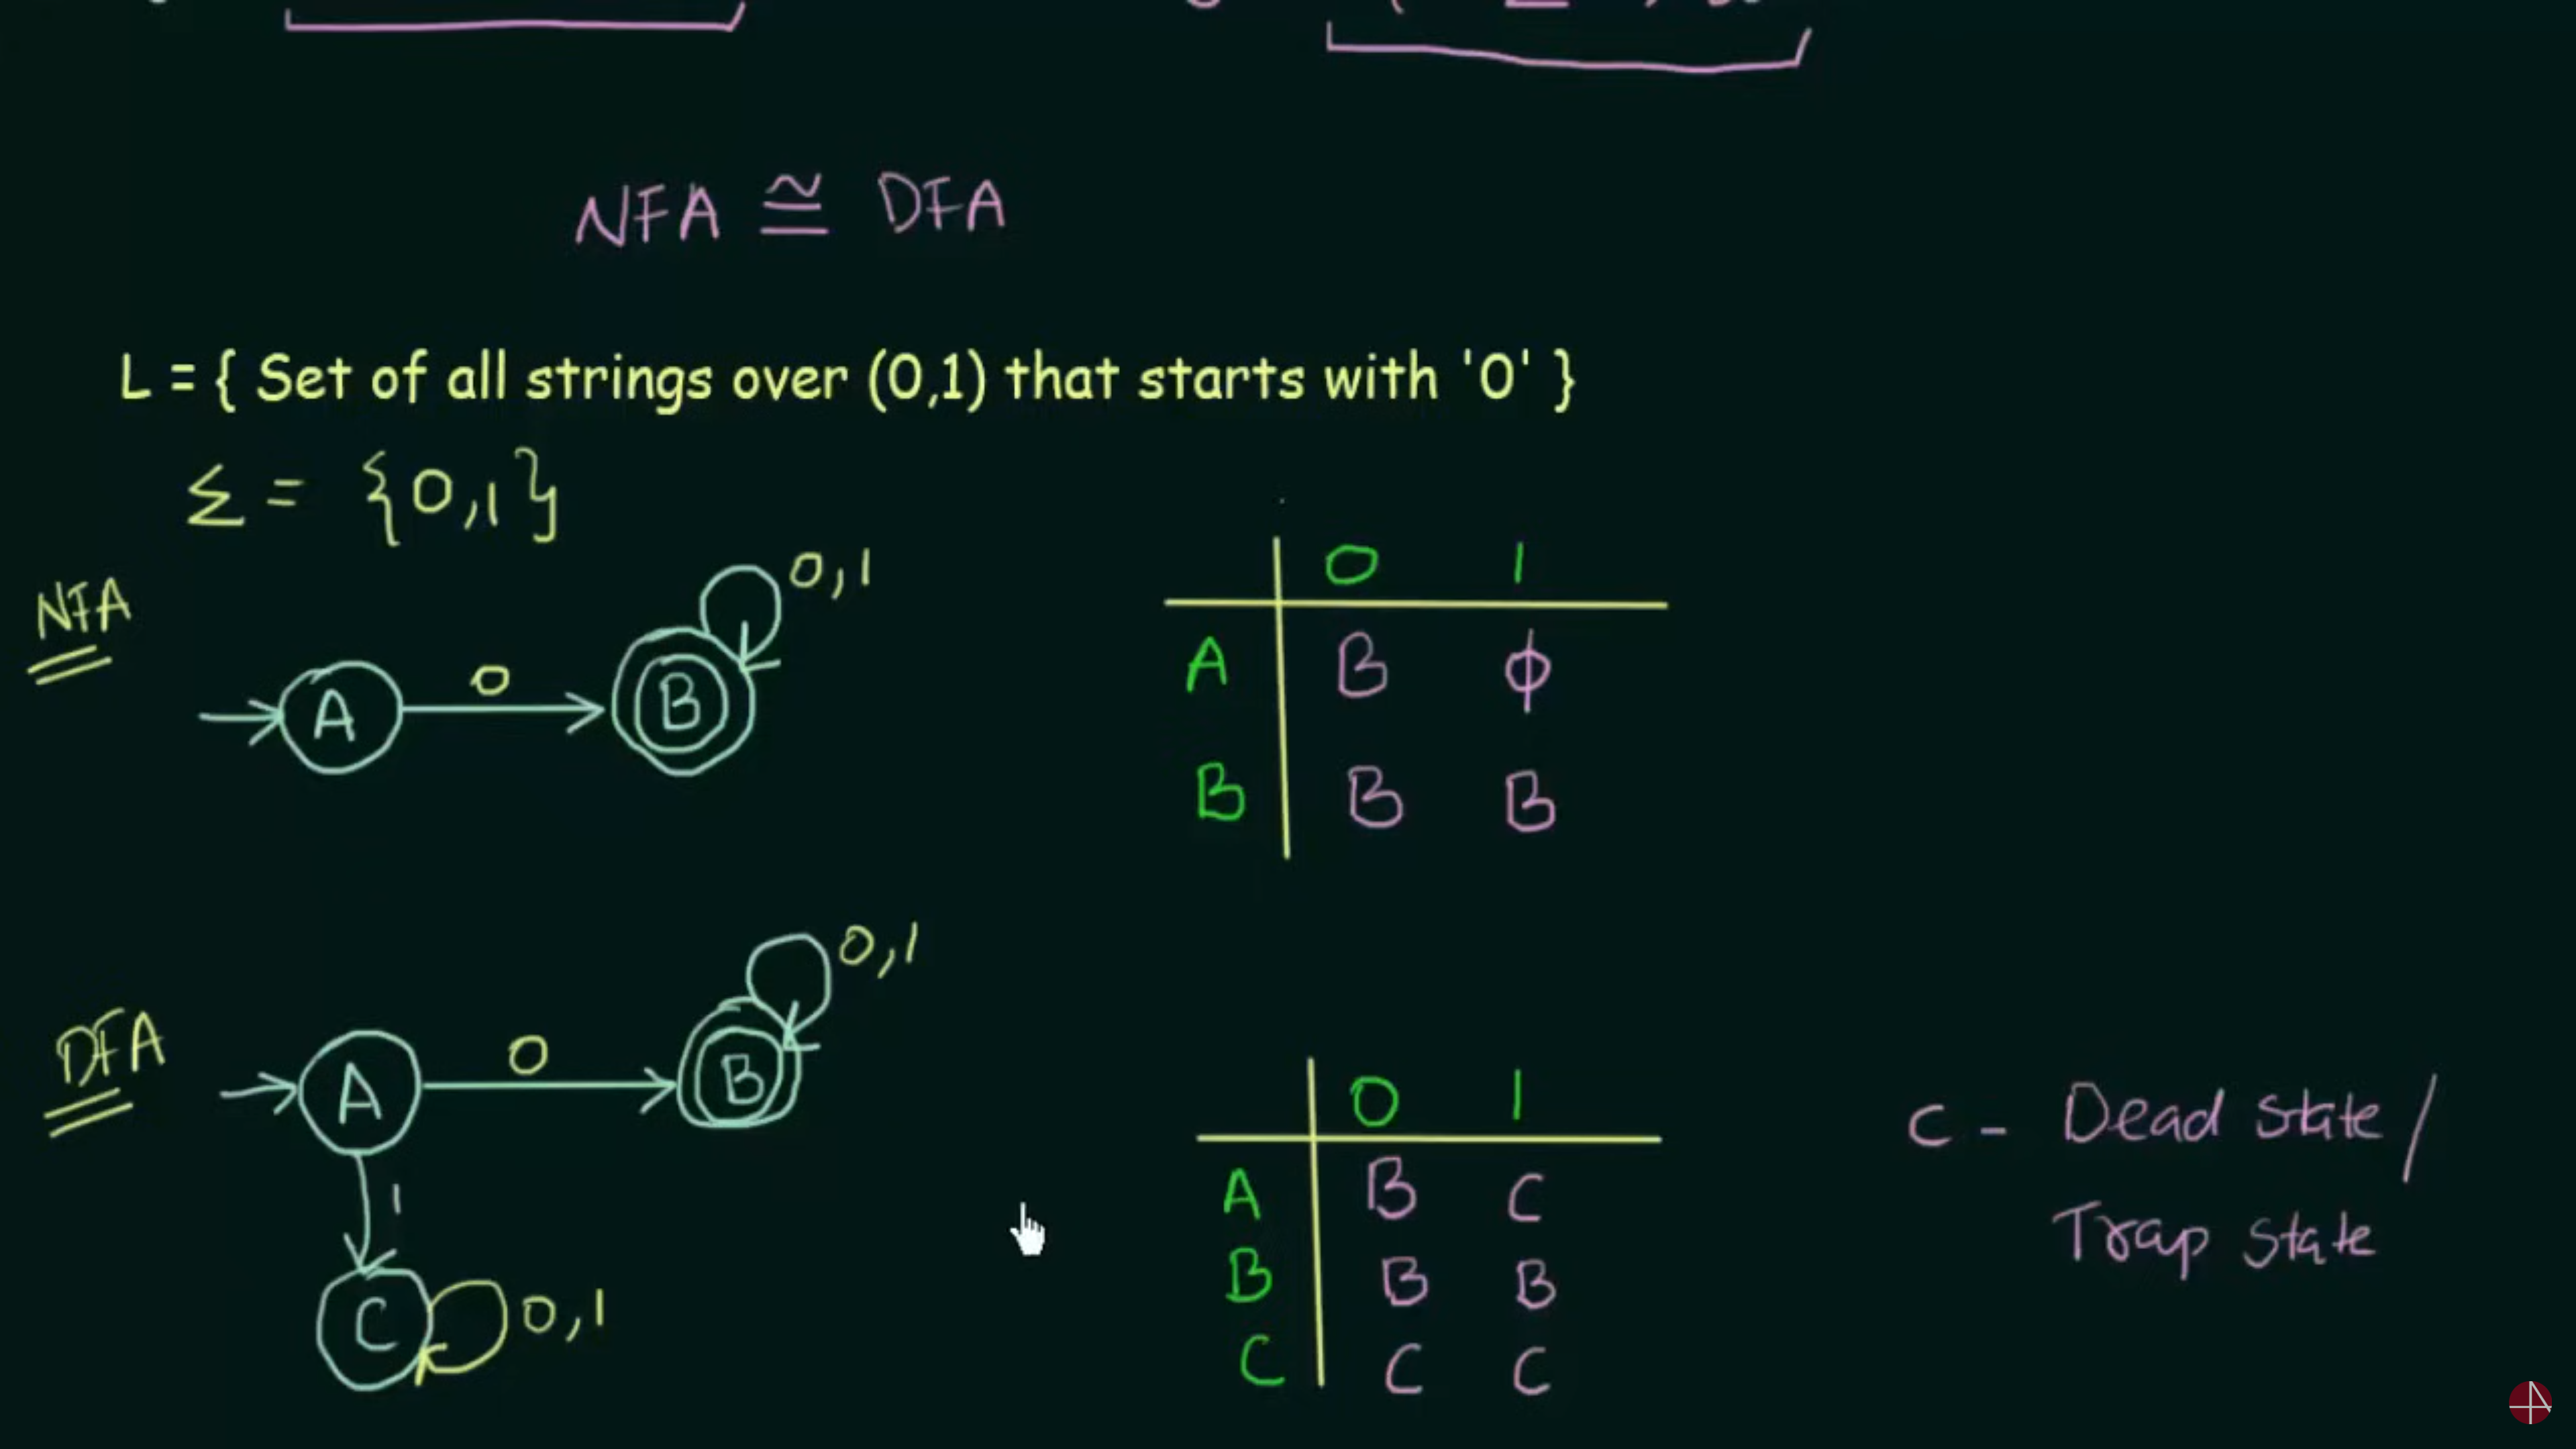 NFA ≅ DFA
L = { Set of all strings over (0,1) that starts with '0' }
Σ = {0,1}
NFA
A 0 B 0,1
0 1
A B ϕ
B B B
DFA
A 0 B 0,1
1
C 0,1
0 1
A B C
B B B
C C C
C - Dead state /
Trap state